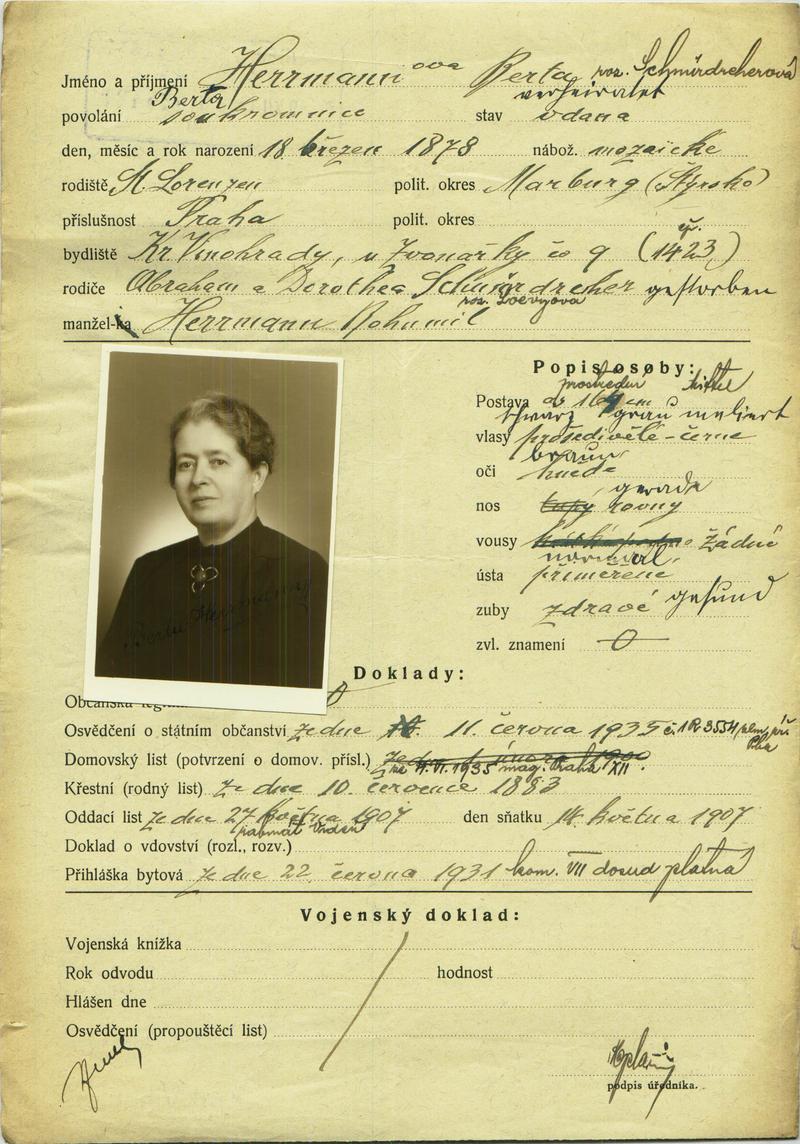 Jméno a příjmení Herrmann ová Berta roz. Schmurdreherová
Berta verheiratet
povolání soukromnice stav vdana
den, měsíc a rok narození 18 březen 1878 nábož. mozaické
rodiště St. Lorenzen polit. okres Marburg (Styrsko)
příslušnost Praha polit. okres
čp.
bydliště Kr. Vinohrady, u Zvonařky čo 9 (1423)
rodiče Abraham a Dorothea Schmurdreher gestorben
roz. Loevyova
manžel-ka Herrmann Bohumil
Popis osoby:
prostřední mittel
Postava 164 cm
schwarz grau meliert
vlasy prošedivělé - černé
braun
oči hnědé
gerade
nos tupý rovný
vousy žádné
normal
ústa přiměřené
zuby zdravé gesund
zvl. znamení 0
Berta Herrmann
Doklady:
Občanská 0
Osvědčení o státním občanství ze dne 11. června 1935 č. 1R 3554
Domovský list (potvrzení o domov. přísl.) ze dne února 1900
11.VI.1935 mag. Praha XII
Křestní (rodný list) ze dne 10. července 1883
Oddací list ze dne 27 května 1907 den sňatku 14. května 1907
Doklad o vdovství (rozl., rozv.)
Přihláška bytová ze dne 22. června 1931 kom. VII dosud platná
Vojenský doklad:
Vojenská knížka
Rok odvodu hodnost
Hlášen dne
Osvědčení (propouštěcí list)
podpis úředníka.